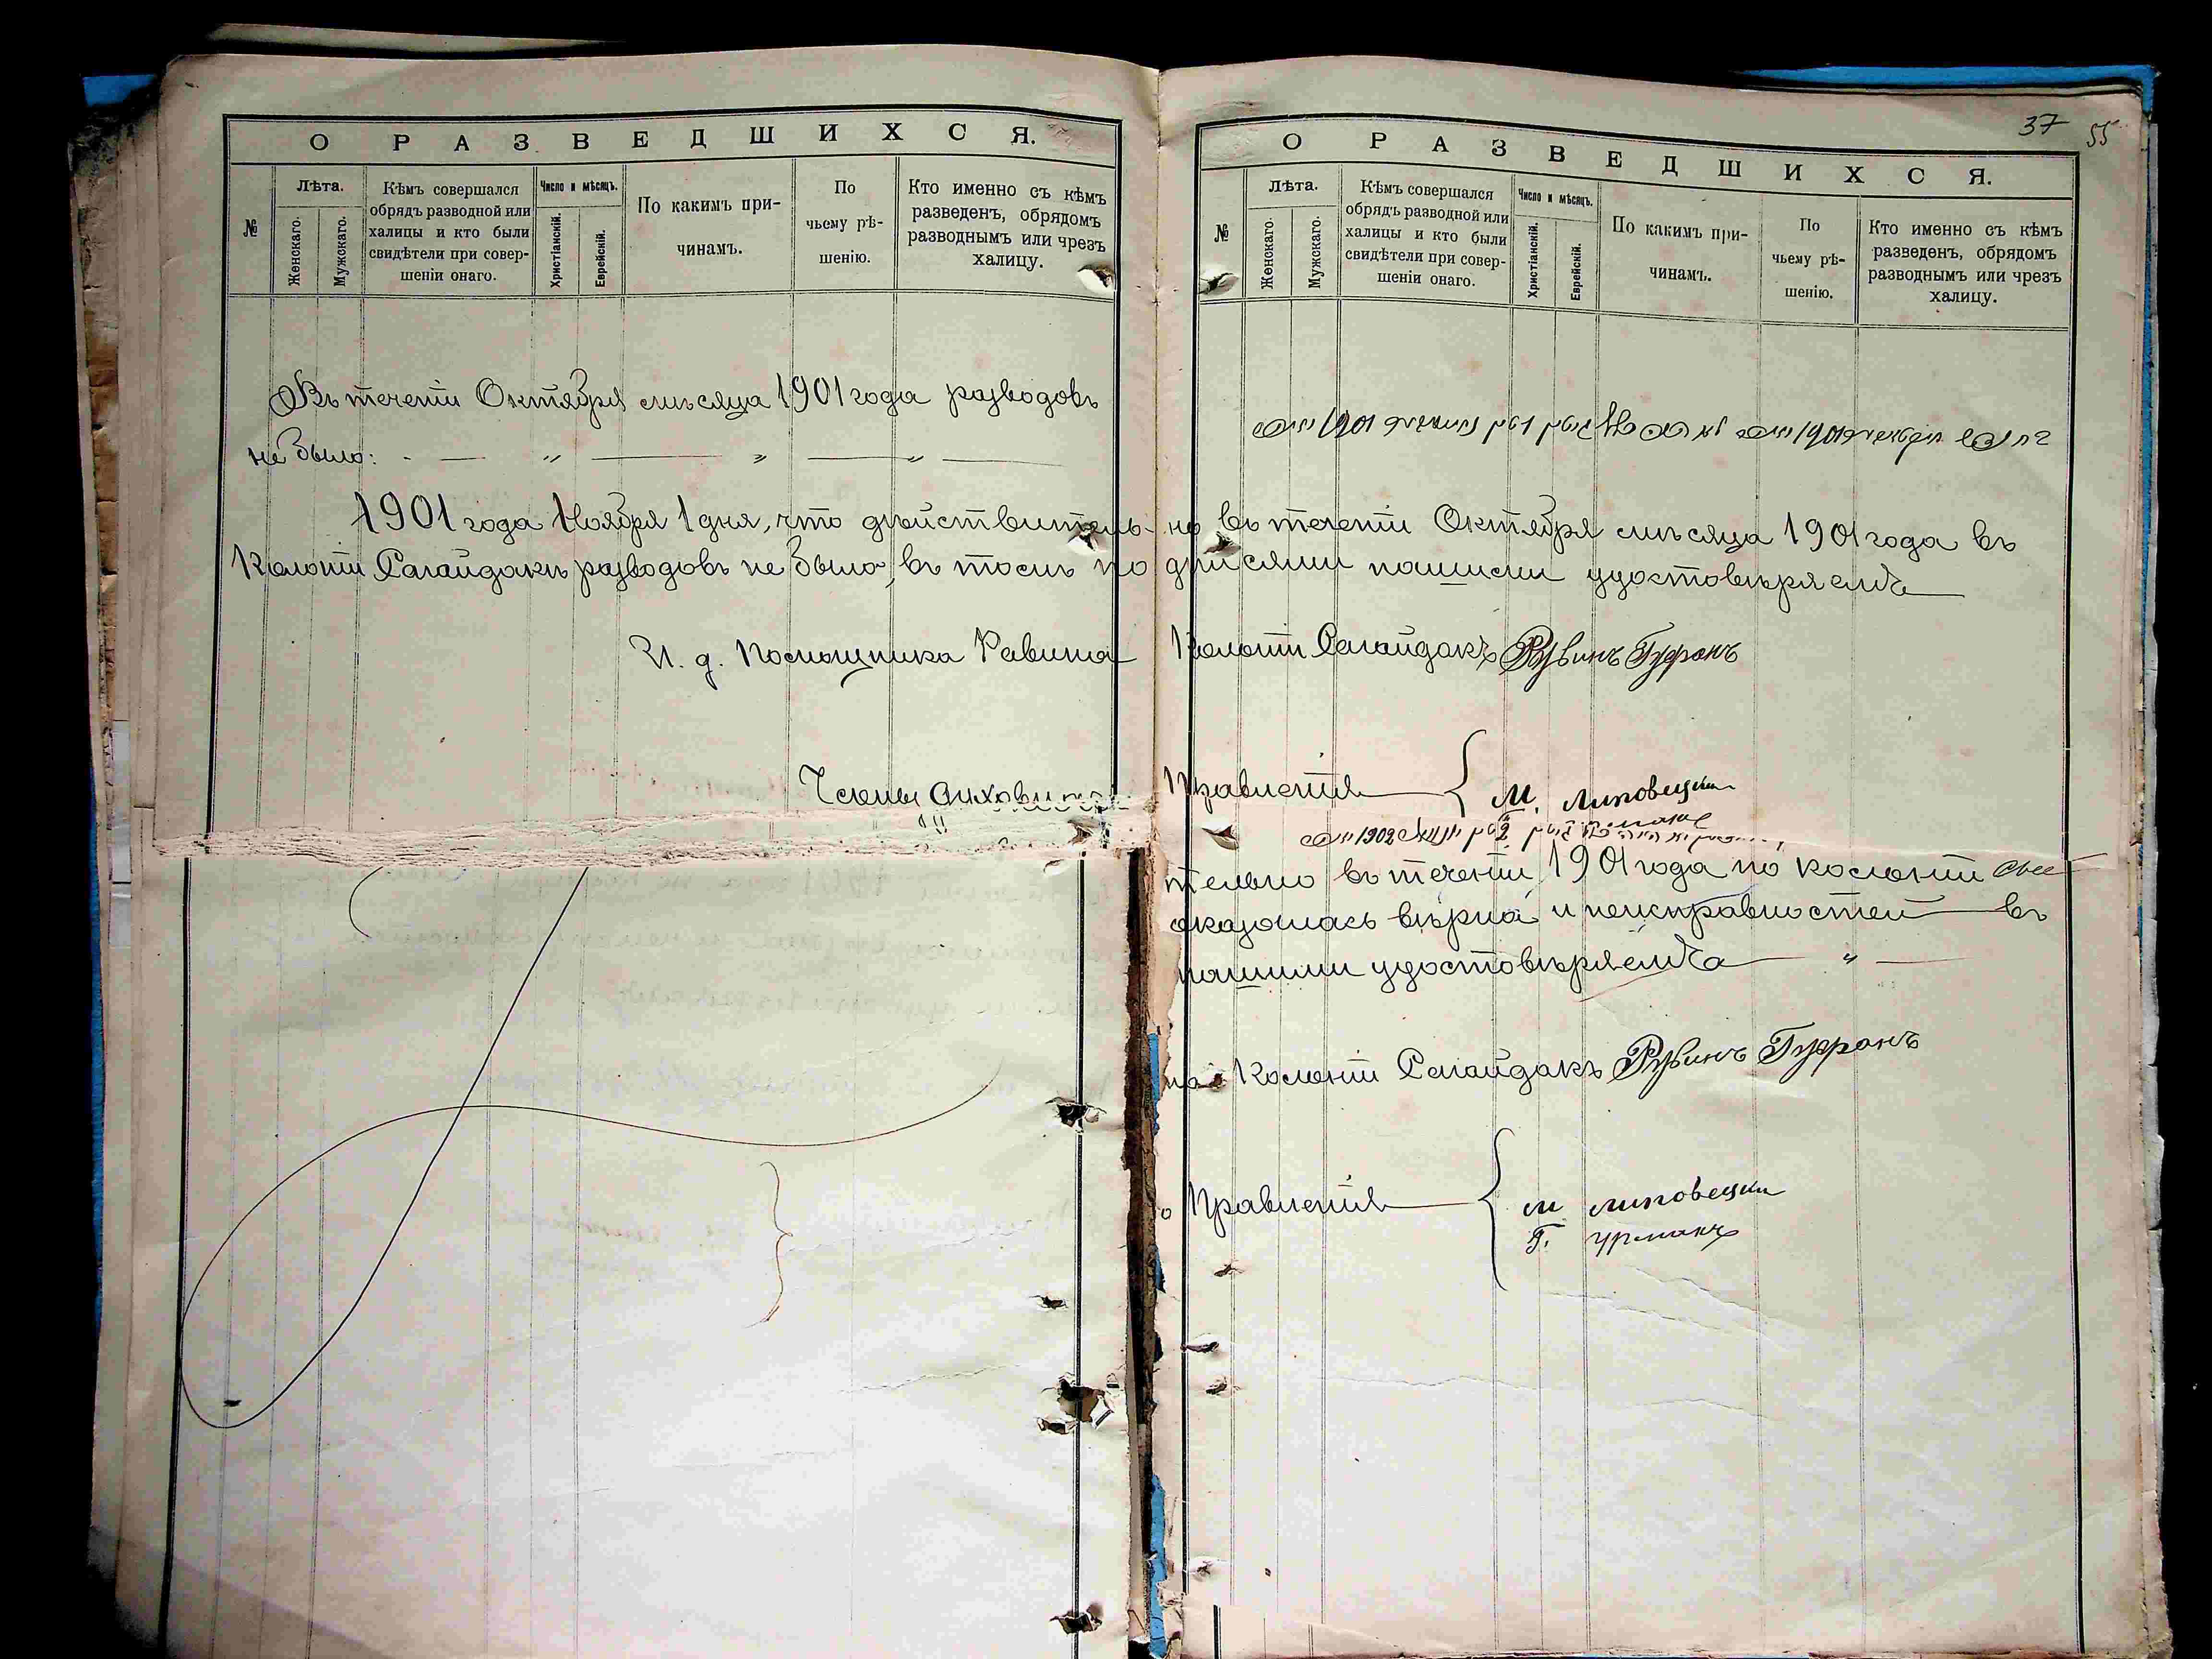 О РАЗВЕДШИХСЯ.
№
Лѣта.
Женскаго.
Мужскаго.
Кѣмъ совершался
обрядъ разводной или
халицы и кто были
свидѣтели при совер-
шеніи онаго.
Число и мѣсяцъ.
Христіанскій.
Еврейскій.
По какимъ при-
чинамъ.
По
чьему рѣ-
шенію.
Кто именно съ кѣмъ
разведенъ, обрядомъ
разводнымъ или чрезъ
халицу.
Въ теченіи Октября мѣсяца 1901 года разводовъ
не было:
1901 года Ноября 1 дня, что действитель-
Колоніи Сагайдакъ разводовъ не было, въ томъ по
И. д. Помощника Равина
Члены Духовнаго
37 55
О РАЗВЕДШИХСЯ.
№
Лѣта.
Женскаго.
Мужскаго.
Кѣмъ совершался
обрядъ разводной или
халицы и кто были
свидѣтели при совер-
шеніи онаго.
Число и мѣсяцъ.
Христіанскій.
Еврейскій.
По какимъ при-
чинамъ.
По
чьему рѣ-
шенію.
Кто именно съ кѣмъ
разведенъ, обрядомъ
разводнымъ или чрезъ
халицу.
1901 1901
но въ теченіи Октября мѣсяца 1901 года въ
дписями нашими удостовѣряемъ
Колоніи Сагайдакъ Рувинъ Гуфранъ
Правленія М. Липовецки
1902
тельно въ теченіи 1901 года по колоніи
оказалась вѣрна и неисправностей въ
нашими удостовѣряемъ
на Колоніи Сагайдакъ Рувинъ Гуфранъ
о Правленія
М Липовецки
Г. Урманъ